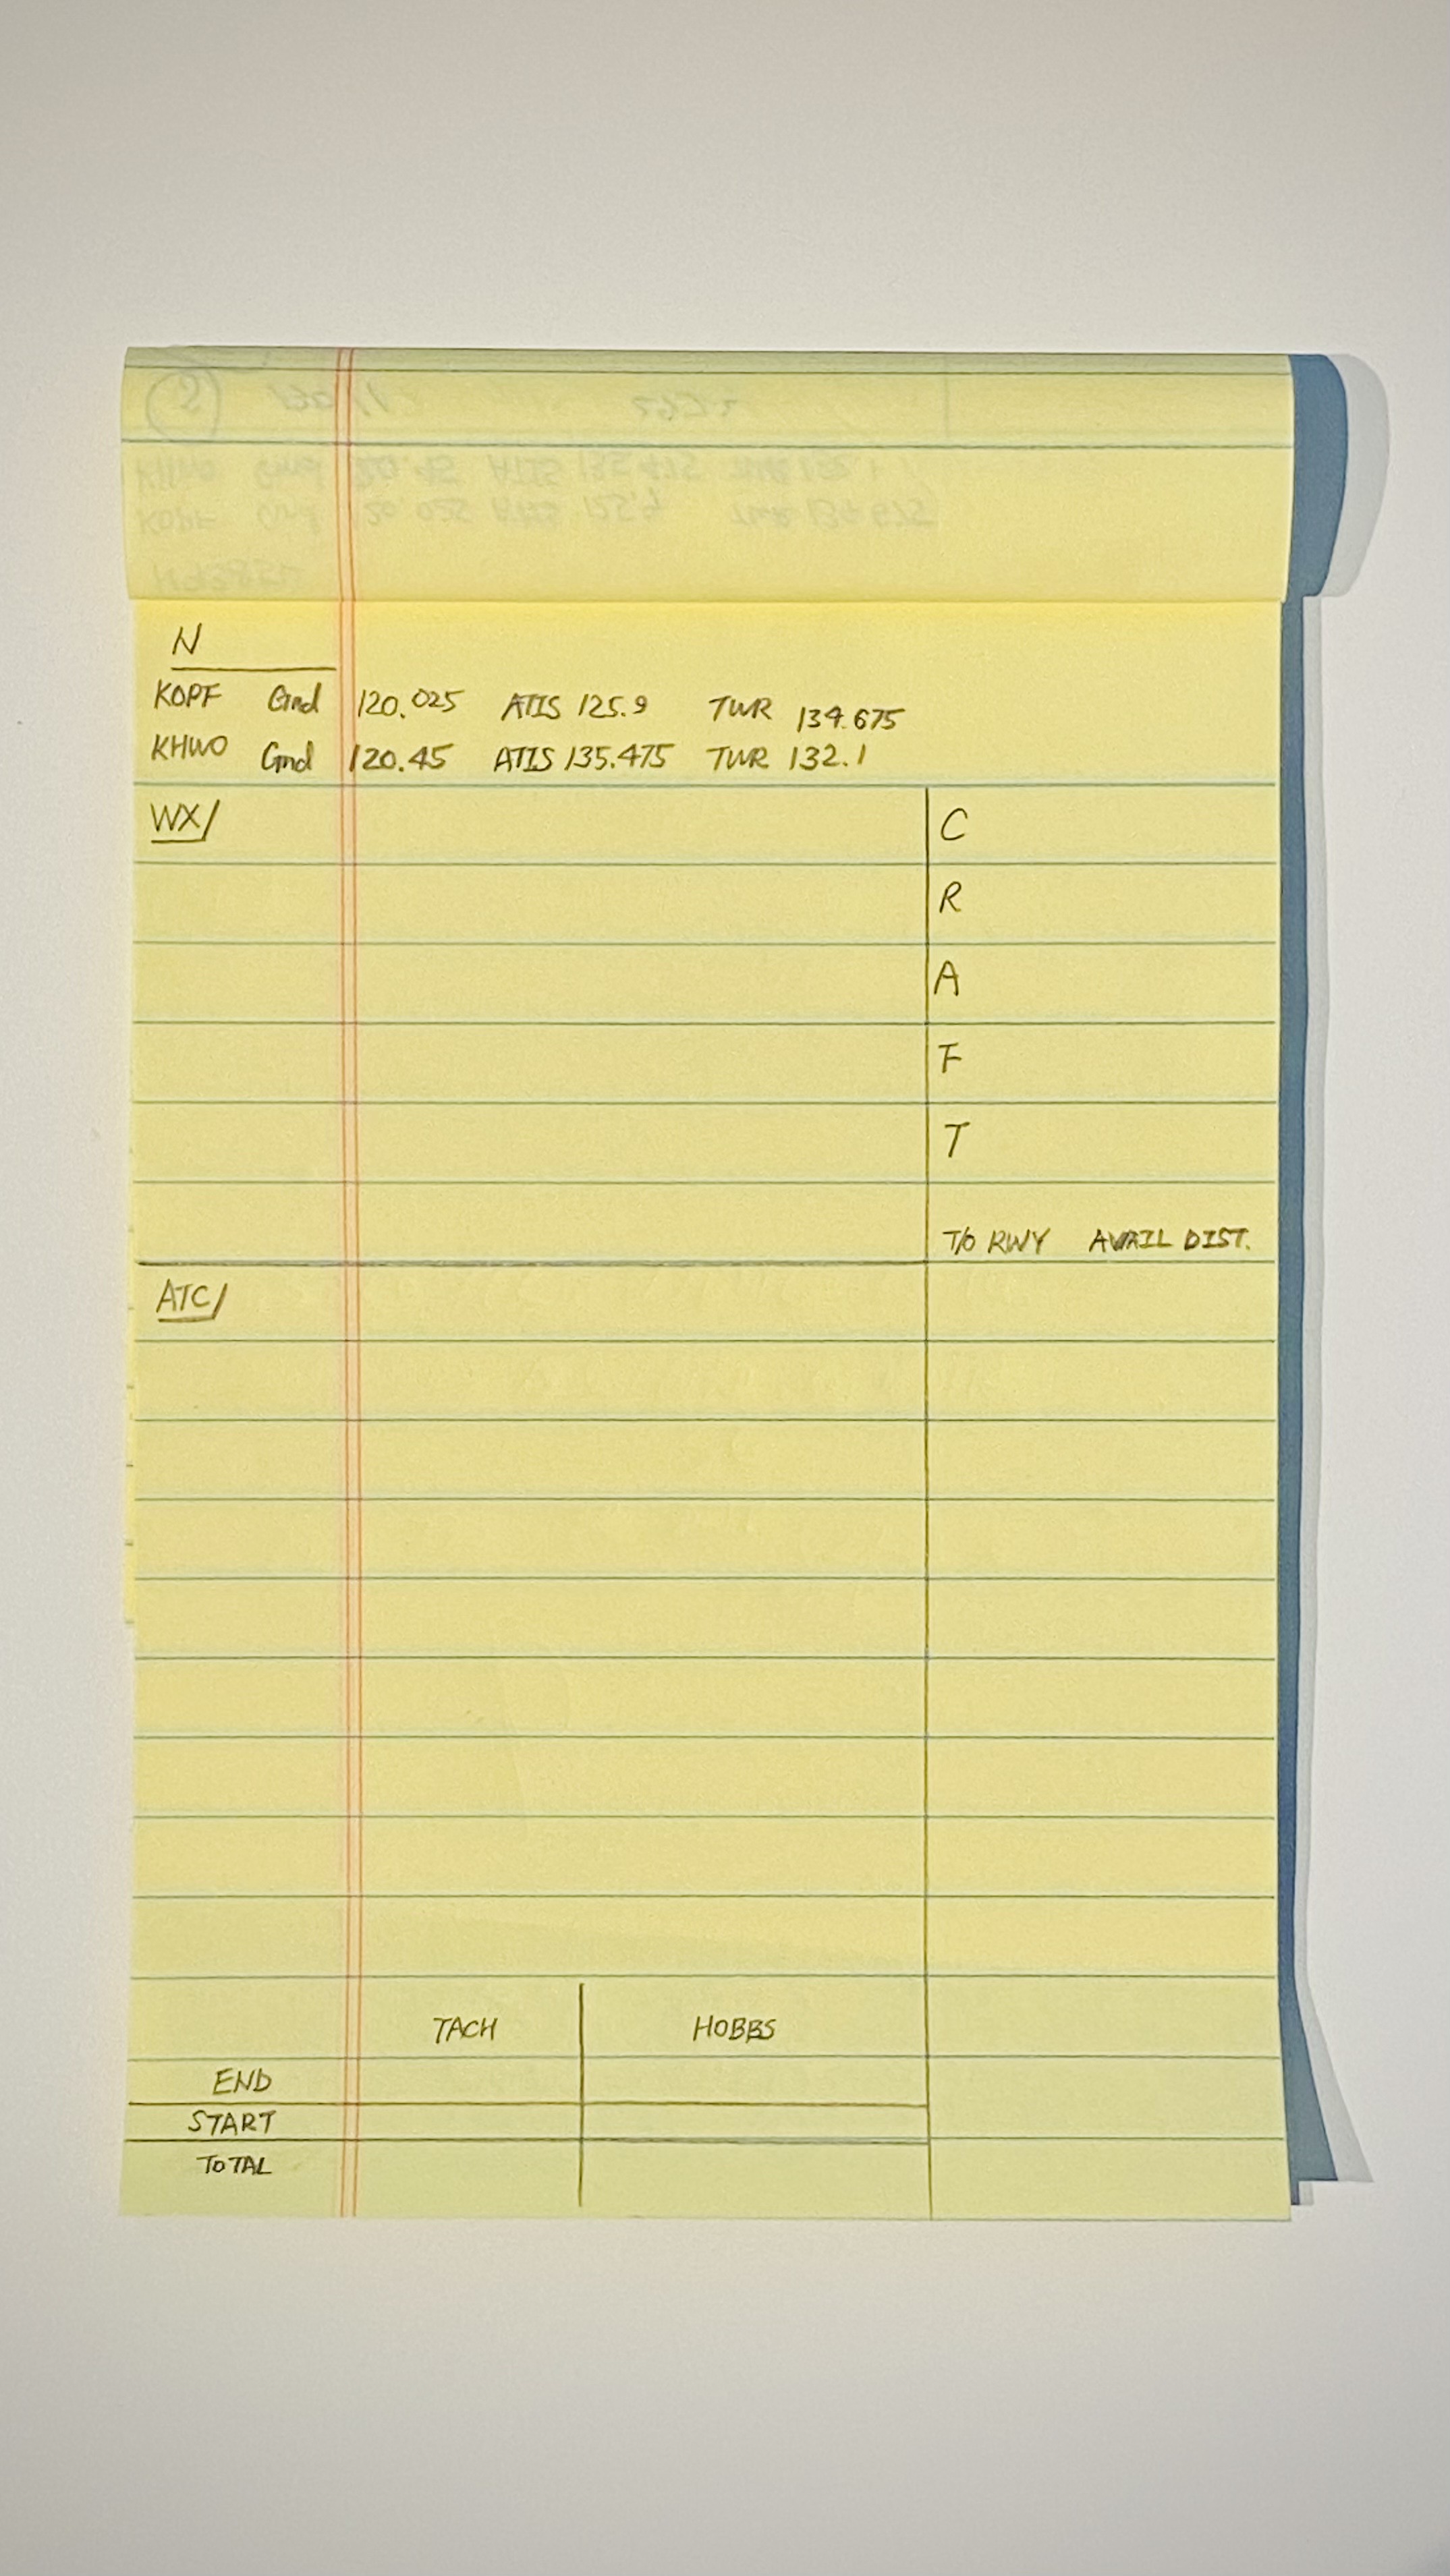 N
KOPF Gnd 120.025 ATIS 125.9 TWR 134.675
KHWO Gnd 120.45 ATIS 135.475 TWR 132.1
WX/
C
R
A
F
T
T/O RWY AVAIL DIST.
ATC/
TACH HOBBS
END
START
TOTAL